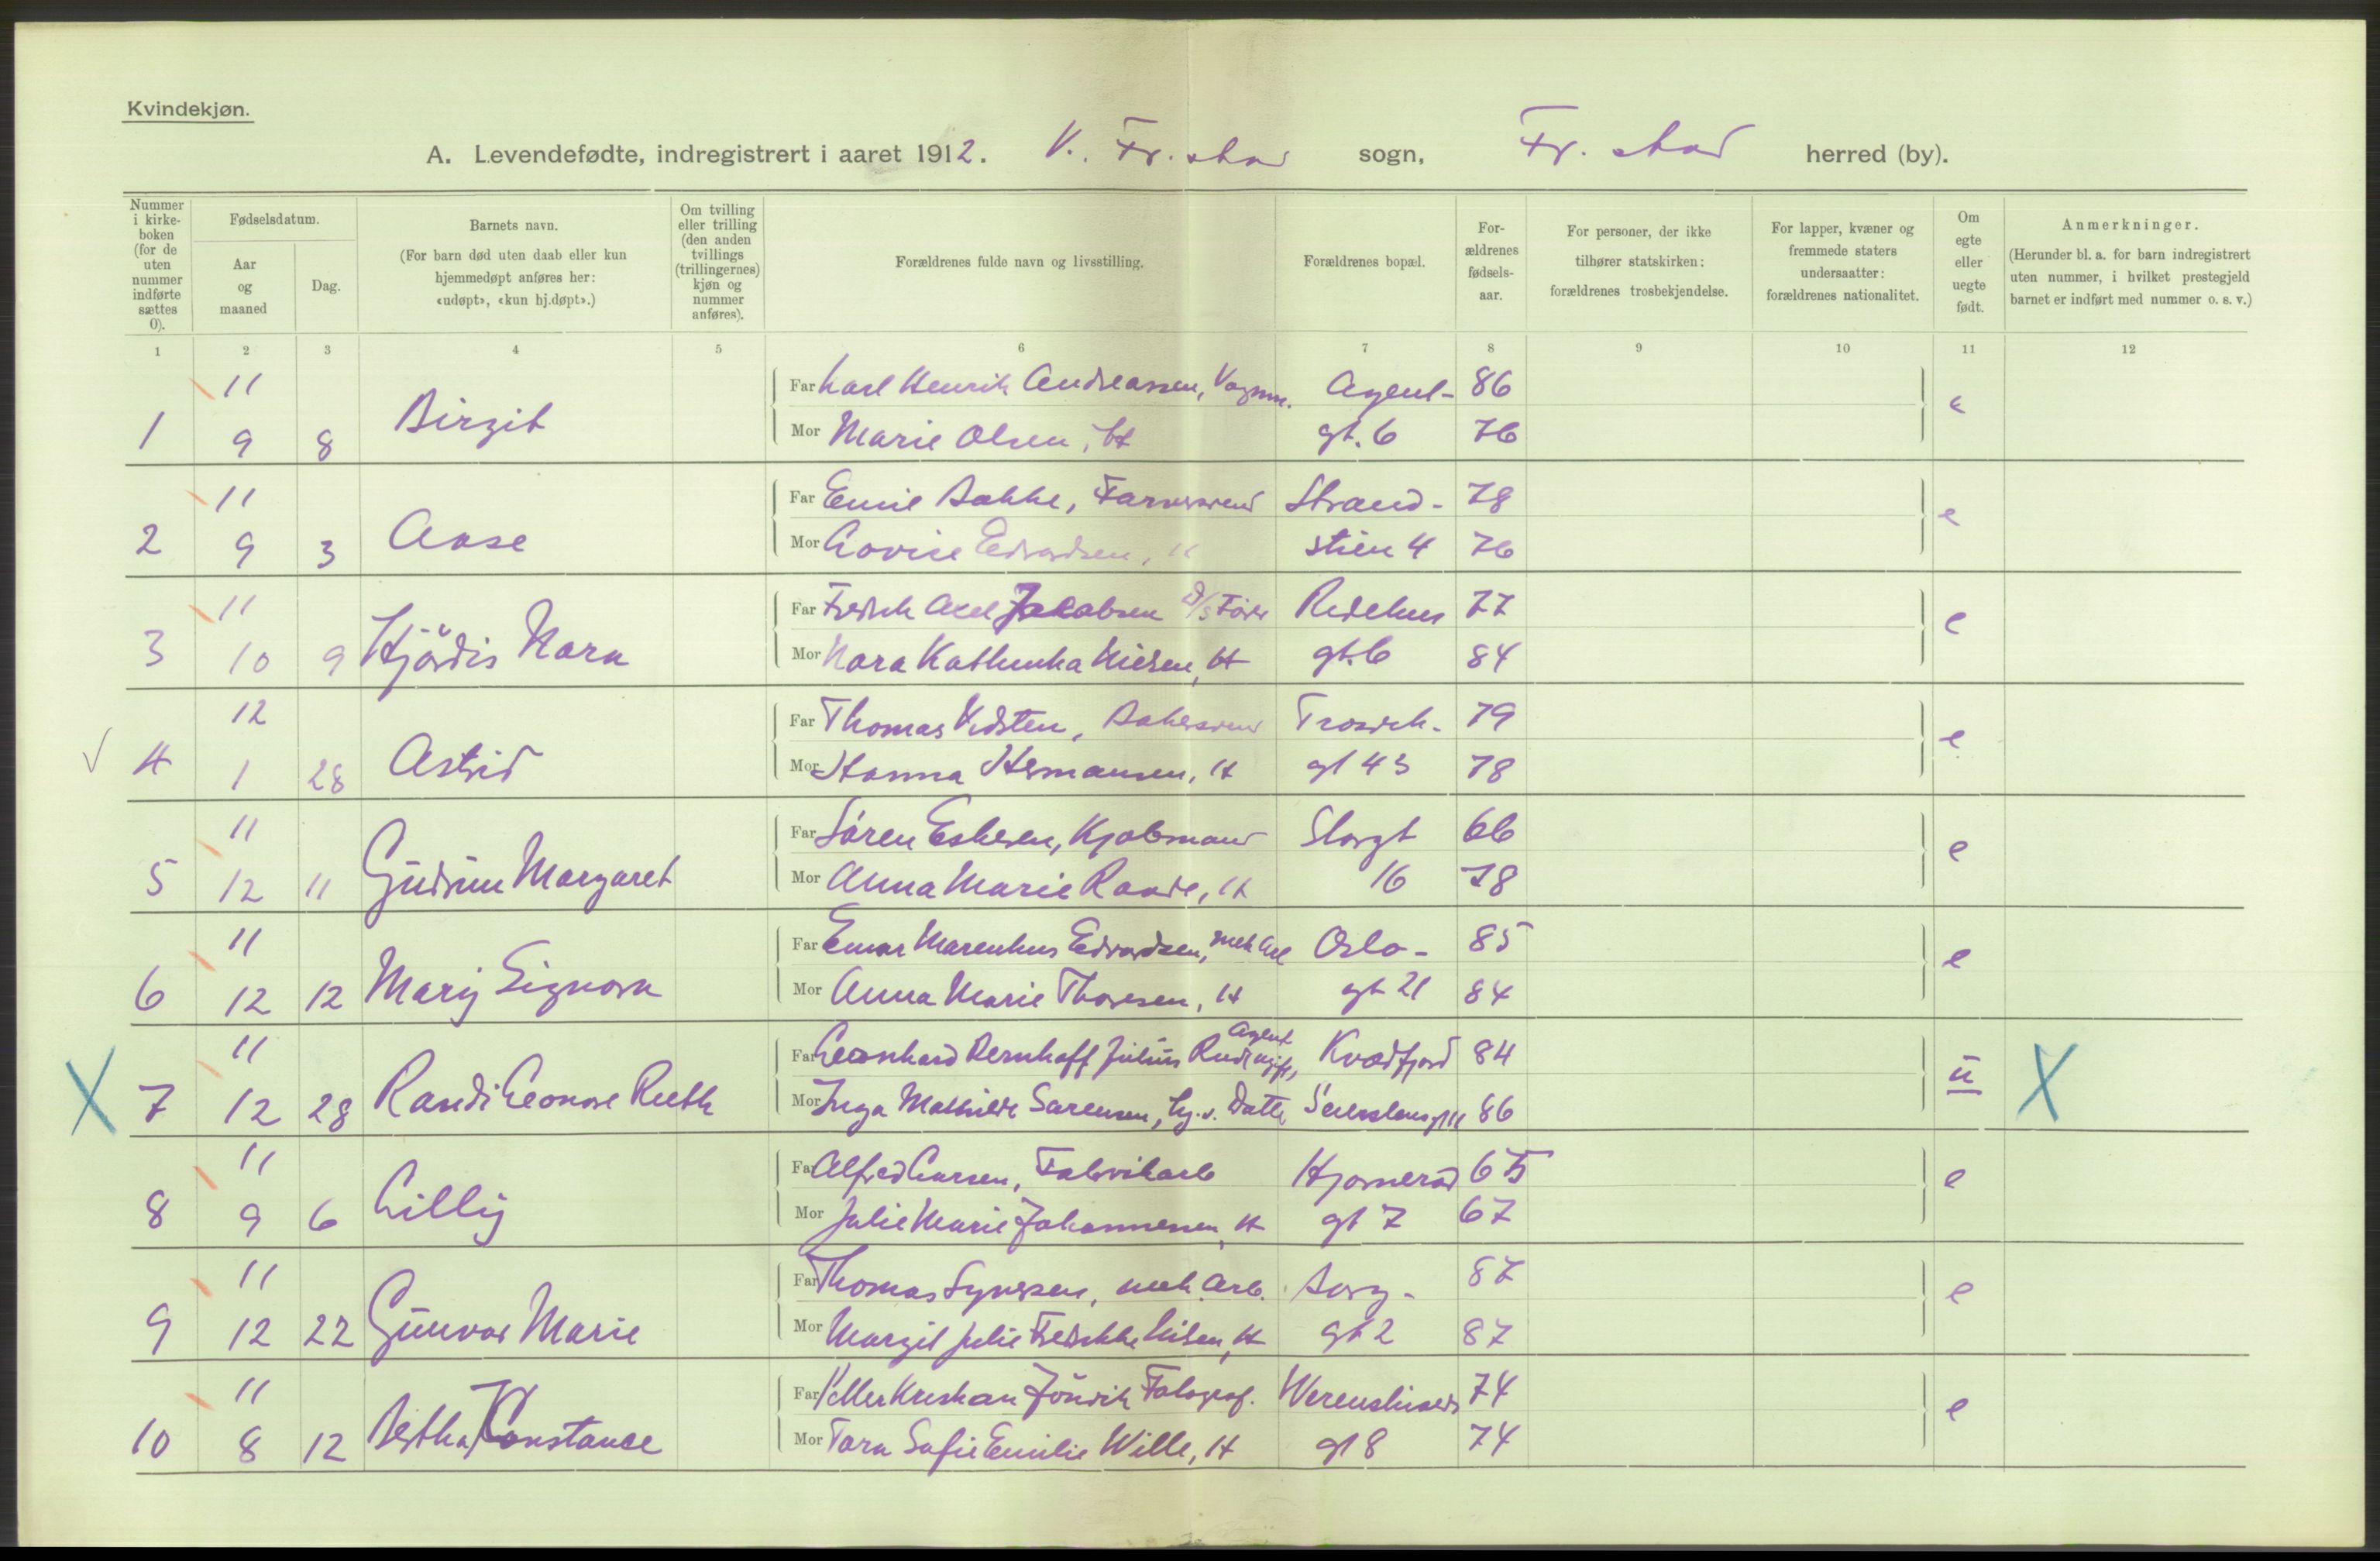 Kvindekjøn.
A. Levendefødte, indregistrert i aaret 1912. V. Fr. stad sogn, Fr. stad herred (by).
Nummer i kirke-boken (for de uten nummer indførte sættes 0).
Fødselsdatum.
Aar og maaned
Dag.
Barnets navn.
(For barn død uten daab eller kun hjemmedøpt anføres her: «udøpt», «kun hj.døpt».)
Om tvilling eller trilling (den anden tvillings (trillingernes) kjøn og nummer anføres).
Forældrenes fulde navn og livsstilling.
Forældrenes bopæl.
For-ældrenes fødsels-aar.
For personer, der ikke tilhører statskirken: forældrenes trosbekjendelse.
For lapper, kvæner og fremmede staters undersaatter: forældrenes nationalitet.
Om egte eller uegte født.
Anmerkninger.
(Herunder bl. a. for barn indregistrert uten nummer, i hvilket prestegjeld barnet er indført med nummer o. s. v.)
1 2 3 4 5 6 7 8 9 10 11 12
11 Far Karl Henrik Andreassen, Vognm. Agent- 86
1 9 8 Birgit Mor Marie Olsen, H gt. 6 76 e
11 Far Emil Bakke, Farversvend Strand- 78
2 9 3 Aase Mor Lovise Edvardsen, H stien 4 76 e
11 Far Fredrik Axel Jakobsen D/S Fører 77
3 10 9 Hjördis Nora Mor Nora Kathinka Nielsen, H gt. 6 84 e
12 Far Thomas Vidsten, Bakersvend Trosvik- 79
4 1 28 Astrid Mor Hanna Hermansen, H gt 43 78 e
11 Far Sören Eskesen, Kjøbmand Storgt 66
5 12 11 Gudrun Margaret Mor Anna Marie Raade, H 16 78 e
11 Far Einar Marenius Edvardsen, mek arb Oslo- 85
6 12 12 Mary Signora Mor Anna Marie Thoresen, H gt 21 84 e
Agent
11 Far Leonhard Bernhoff Julius Rud, ugift, Kvædfjord 84
X 7 12 28 Randi Leonore Ruth Mor Inga Mathilde Sørensen, hj. v. Datter 86 u X
11 Far Alfred Larsen, Fabrikarb 65
8 9 6 Lilly Mor Julie Marie Johannessen, H gt 7 67 e
11 Far Thomas Syversen, mek. Arb. Borg- 87
9 12 22 Gunvor Marie Mor Margit Julie Fredrikke Nilsen, H gt 2 87 e
11 Far Petter Kristian Fotograf. Werenskiolds 74
10 8 12 Bertha Constance Mor Tora Sofie Emilie Wille, H gt 8 74 e